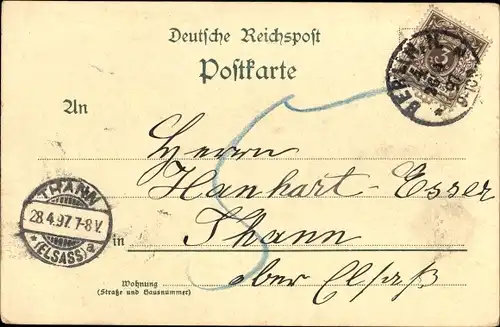 Deutsche Reichspost
Postkarte
An
Herrn
Hanhart-Esser
THANN
28.4.97. 7-8V.
* (ELSASS) a
in Thann
Ober Elsaß
Wohnung
(Straße und Hausnummer)
BERLIN
3